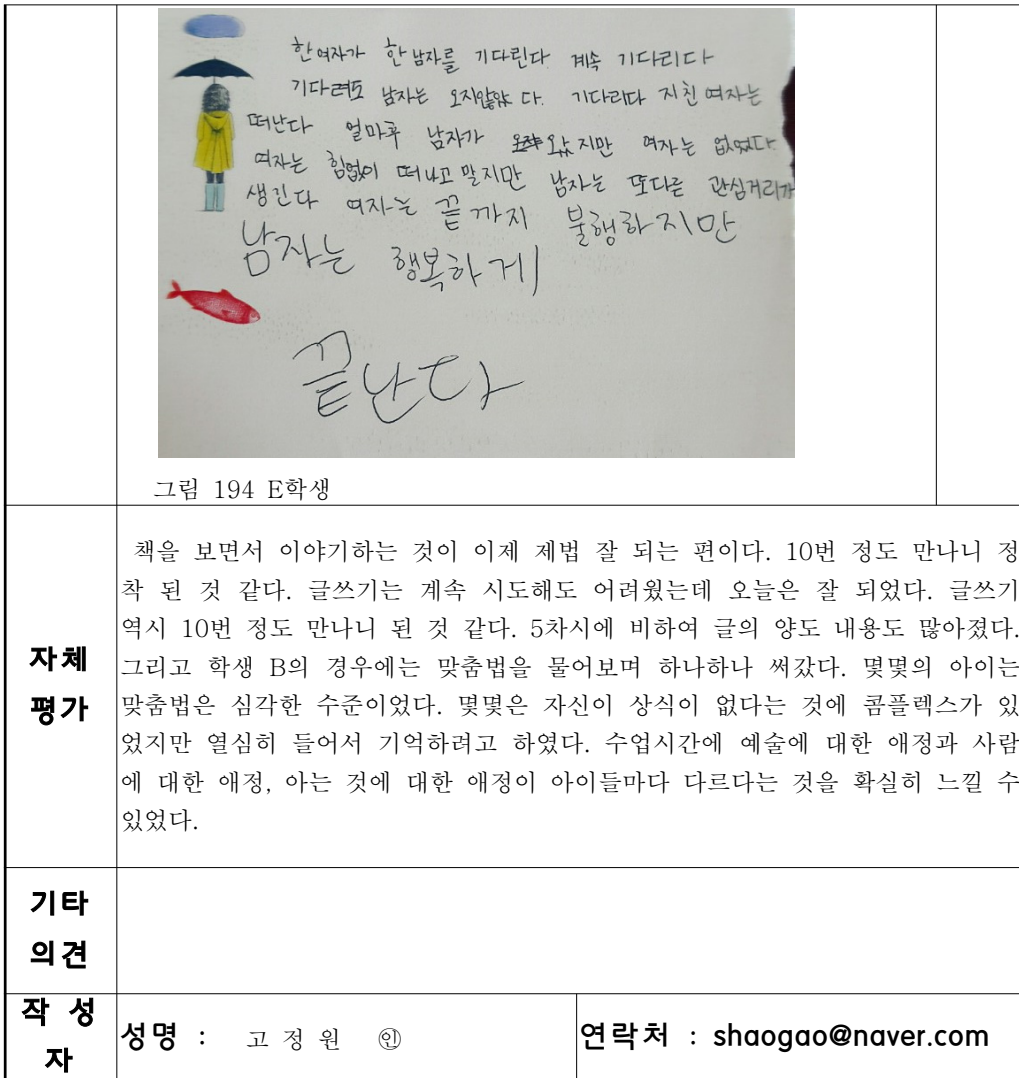 한여자가 한남자를 기다린다 계속 기다리다
기다려도 남자는 오지않았다. 기다리다 지친 여자는
떠난다 얼마후 남자가 왔지만 여자는 없었다
여자는 힘없이 떠나고 말지만 남자는 또다른 관심거리가
생긴다 여자는 끝까지 불행하지만
남자는 행복하게
끝난다
그림 194 E학생
자체
평가
책을 보면서 이야기하는 것이 이제 제법 잘 되는 편이다. 10번 정도 만나니 정
착 된 것 같다. 글쓰기는 계속 시도해도 어려웠는데 오늘은 잘 되었다. 글쓰기
역시 10번 정도 만나니 된 것 같다. 5차시에 비하여 글의 양도 내용도 많아졌다.
그리고 학생 B의 경우에는 맞춤법을 물어보며 하나하나 써갔다. 몇몇의 아이는
맞춤법은 심각한 수준이었다. 몇몇은 자신이 상식이 없다는 것에 콤플렉스가 있
었지만 열심히 들어서 기억하려고 하였다. 수업시간에 예술에 대한 애정과 사람
에 대한 애정, 아는 것에 대한 애정이 아이들마다 다르다는 것을 확실히 느낄 수
있었다.
기타
의견
작 성
자
성명 : 고 정 원 ㊞
연락처 : shaogao@naver.com